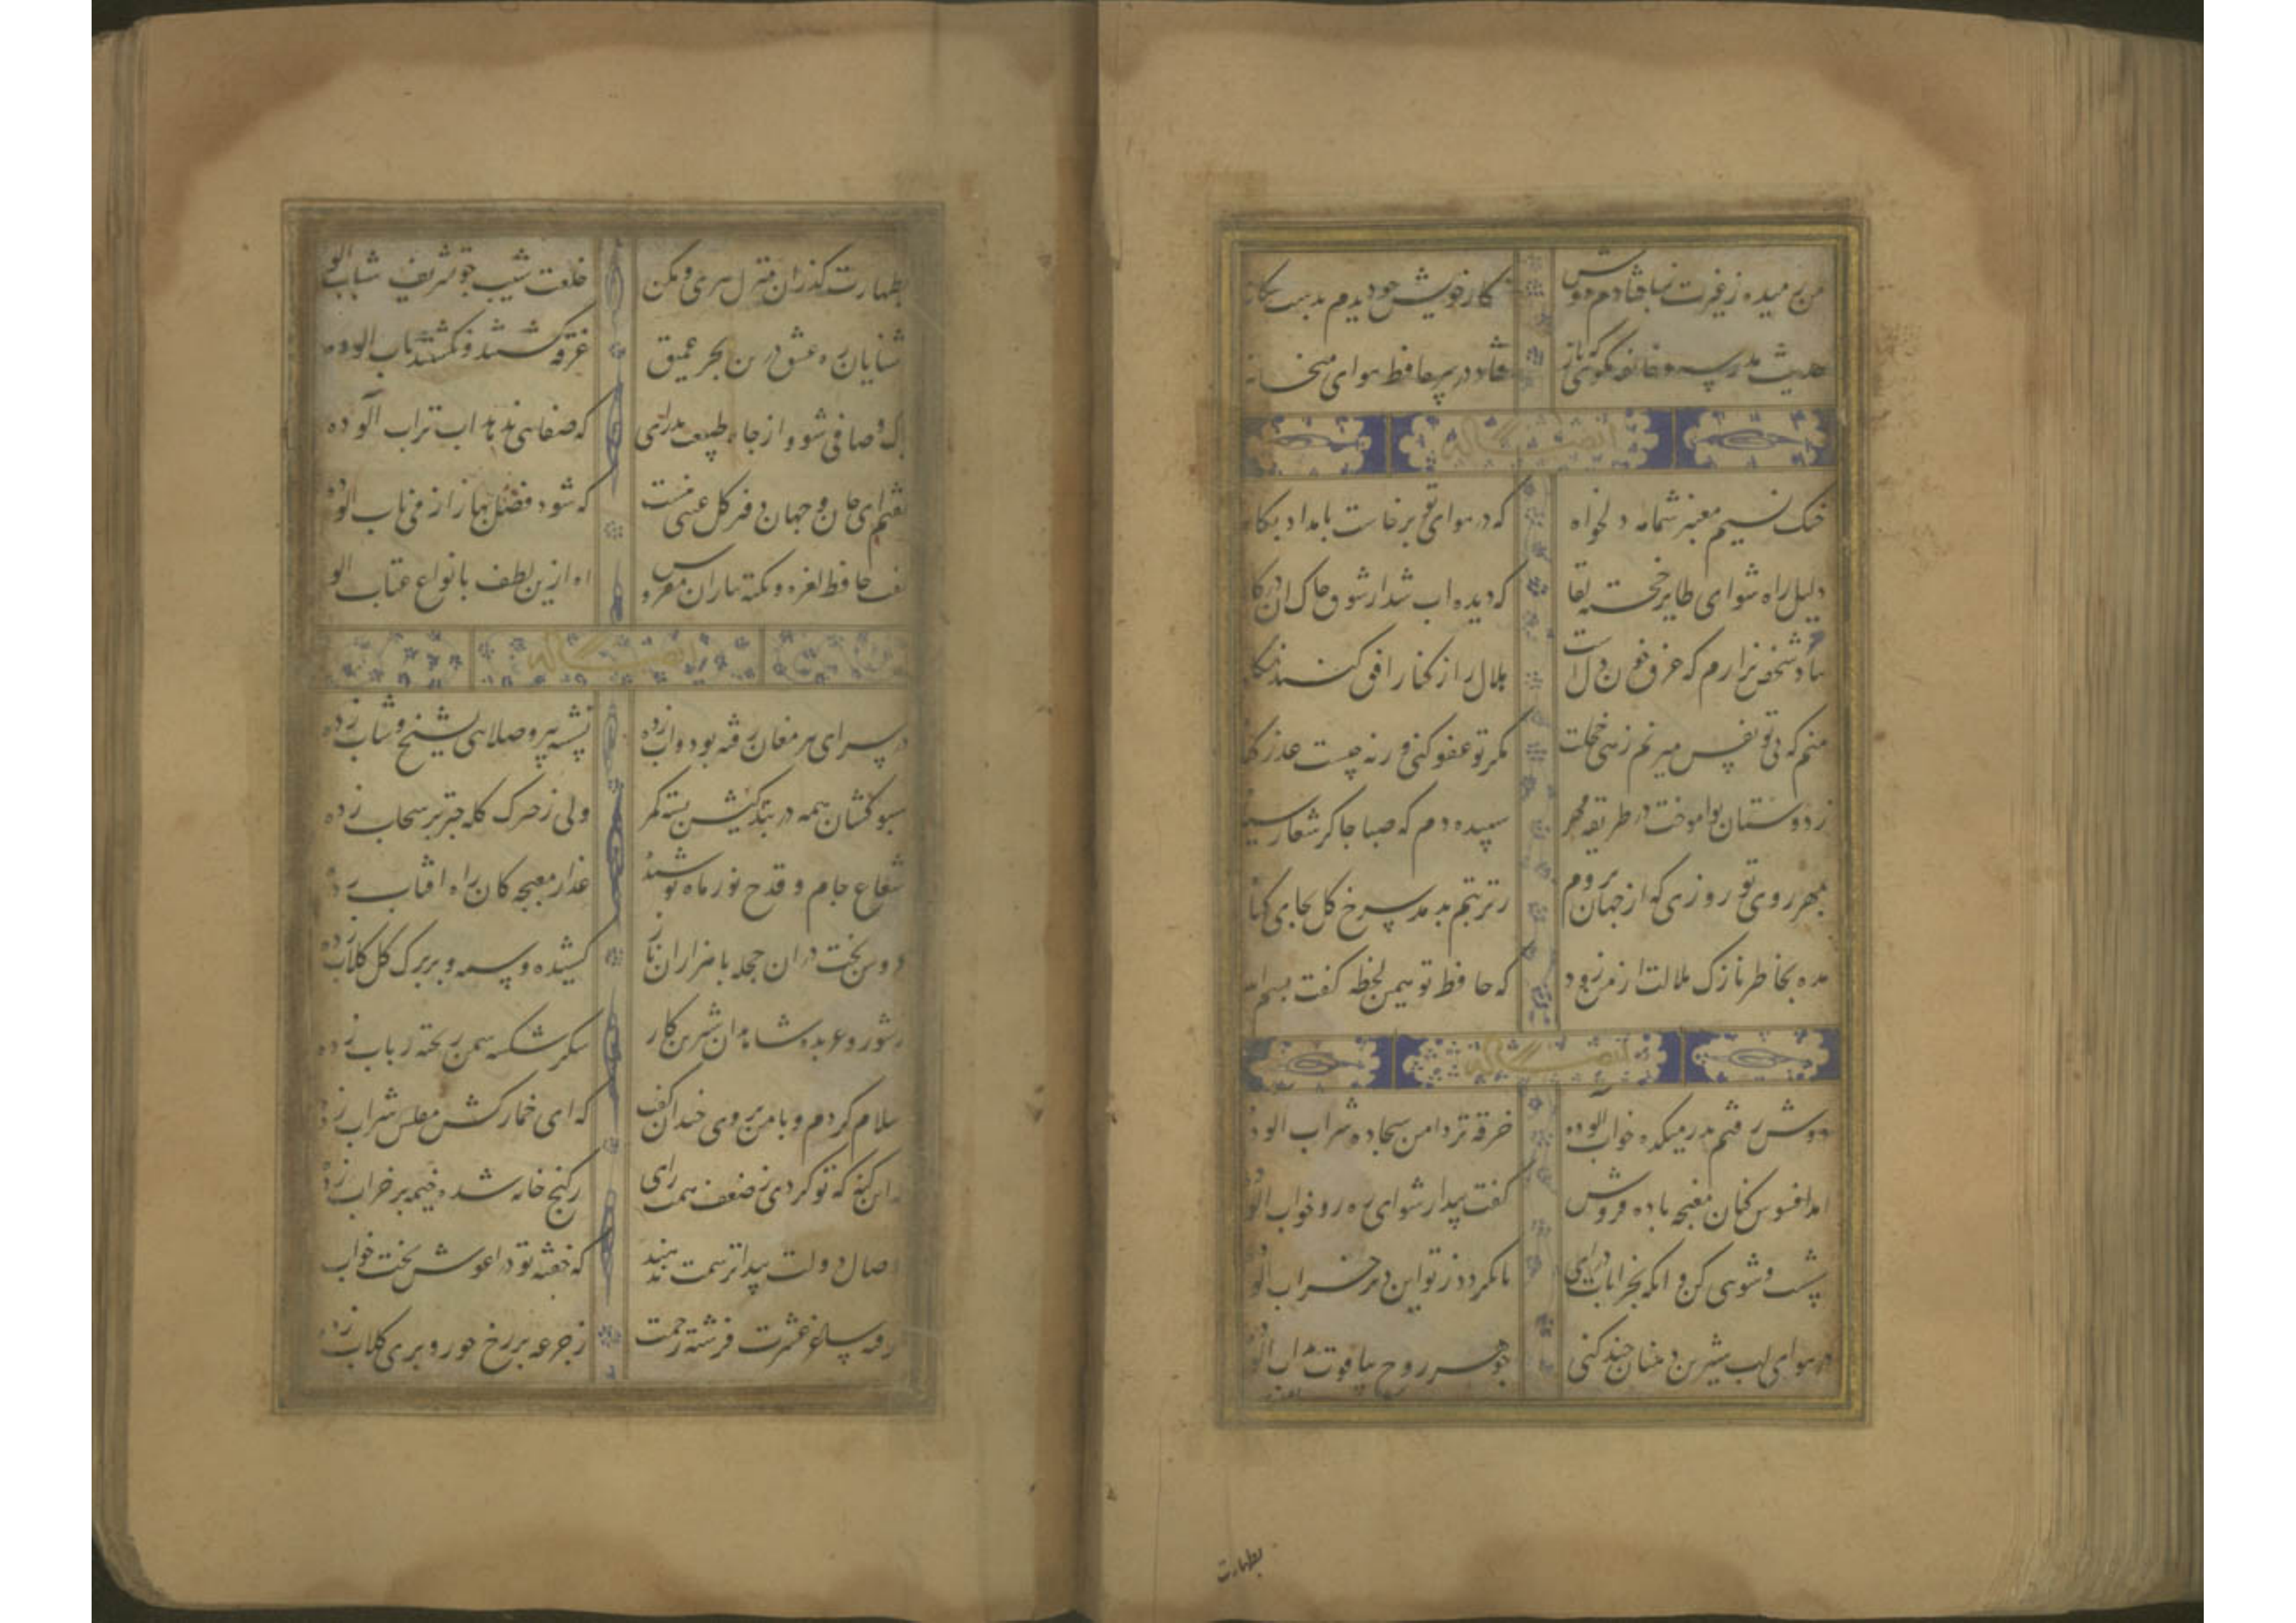 من رمیده ز غیرت ز پا فتادم دوش    نگار خویش چو دیدم بدست
حدیث مدرسه و خانقه مگوی که باز    فتاد در سر حافظ هوای میخانه
ایضا له
خنک نسیم معنبر شمامه دلخواه    که در هوای تو برخاست بامداد بکاه
دلیل راه شو ای طایر خجسته لقا    که دیده اب شد از شوق خاک ان درکاه
شخص نزارم که غرق خون دلست    هلال را ز کنار افق کنند نکاه
منم که بی تو نفس میزنم زهی خجلت    مکر تو عفو کنی ور نه چیست عذر کناه
ز دوستان تو اموخت در طریقه مهر    سپیده دم که صبا چاک زد شعار سیاه
بمهر روی تو روزی که از جهان بروم    ز تربتم بدمد سرخ کل بجای کیاه
مده بخاطر نازک ملالت از من زود    که حافظ تو همین لحظه کفت بسم الله
ایضا له
دوش رفتم بدر میکده خواب آلوده    خرقه تر دامن و سجاده شراب الوده
امد افسوس کنان مغبچه باده فروش    کفت بیدار شو ای ره رو خواب الوده
شست و شویی کن و انکه بخرابات درای    تا نکردد ز تو این دیر خراب الوده
در هوای لب شیرین دهنان چند کنی    جوهر روح بیاقوت مذاب الوده
بطهارت
بطهارت کذران منزل پیری و مکن    خلعت شیب چو تشریف شباب الوده
اشنایان ره عشق درین بحر عمیق    غرقه کشتند و نکشتند باب الوده
پاک و صافی شو و از چاه طبیعت بدرای    که صفایی ندهد اب تراب آلوده
کفتم ای جان و جهان دفتر کل عیبی نیست    که شود فصل بهار از می ناب الوده
کفت حافظ لغز و نکته بیاران مفروش    اه ازین لطف بانواع عتاب الوده
ایضا له
در سرای مغان رفته بود و اب زده    نشسته پیر و صلایی بشیخ و شاب زده
سبوکشان همه در بندکیش بسته کمر    ولی ز ترک کله چتر بر سحاب زده
شعاع جام و قدح نور ماه پوشیده    عذار مغبچکان راه افتاب زده
عروس بخت در ان حجله با هزاران ناز    کشیده وسمه و بر برک کل کلاب زده
ز شور و عربده شاهدان شیرین کار    شکر شکسته سمن ریخته رباب زده
سلام کردم و با من بروی خندان کفت    که ای خمارکش مفلس شراب زده
که این کند که تو کردی ز ضعف همت و رای    ز کنج خانه شده خیمه بر خراب زده
وصال دولت بیدار ترسمت ندهند    که خفته تو در اغوش بخت خواب
کرفته ساغر عشرت فرشته رحمت    ز جرعه بر رخ حور و پری کلاب زده